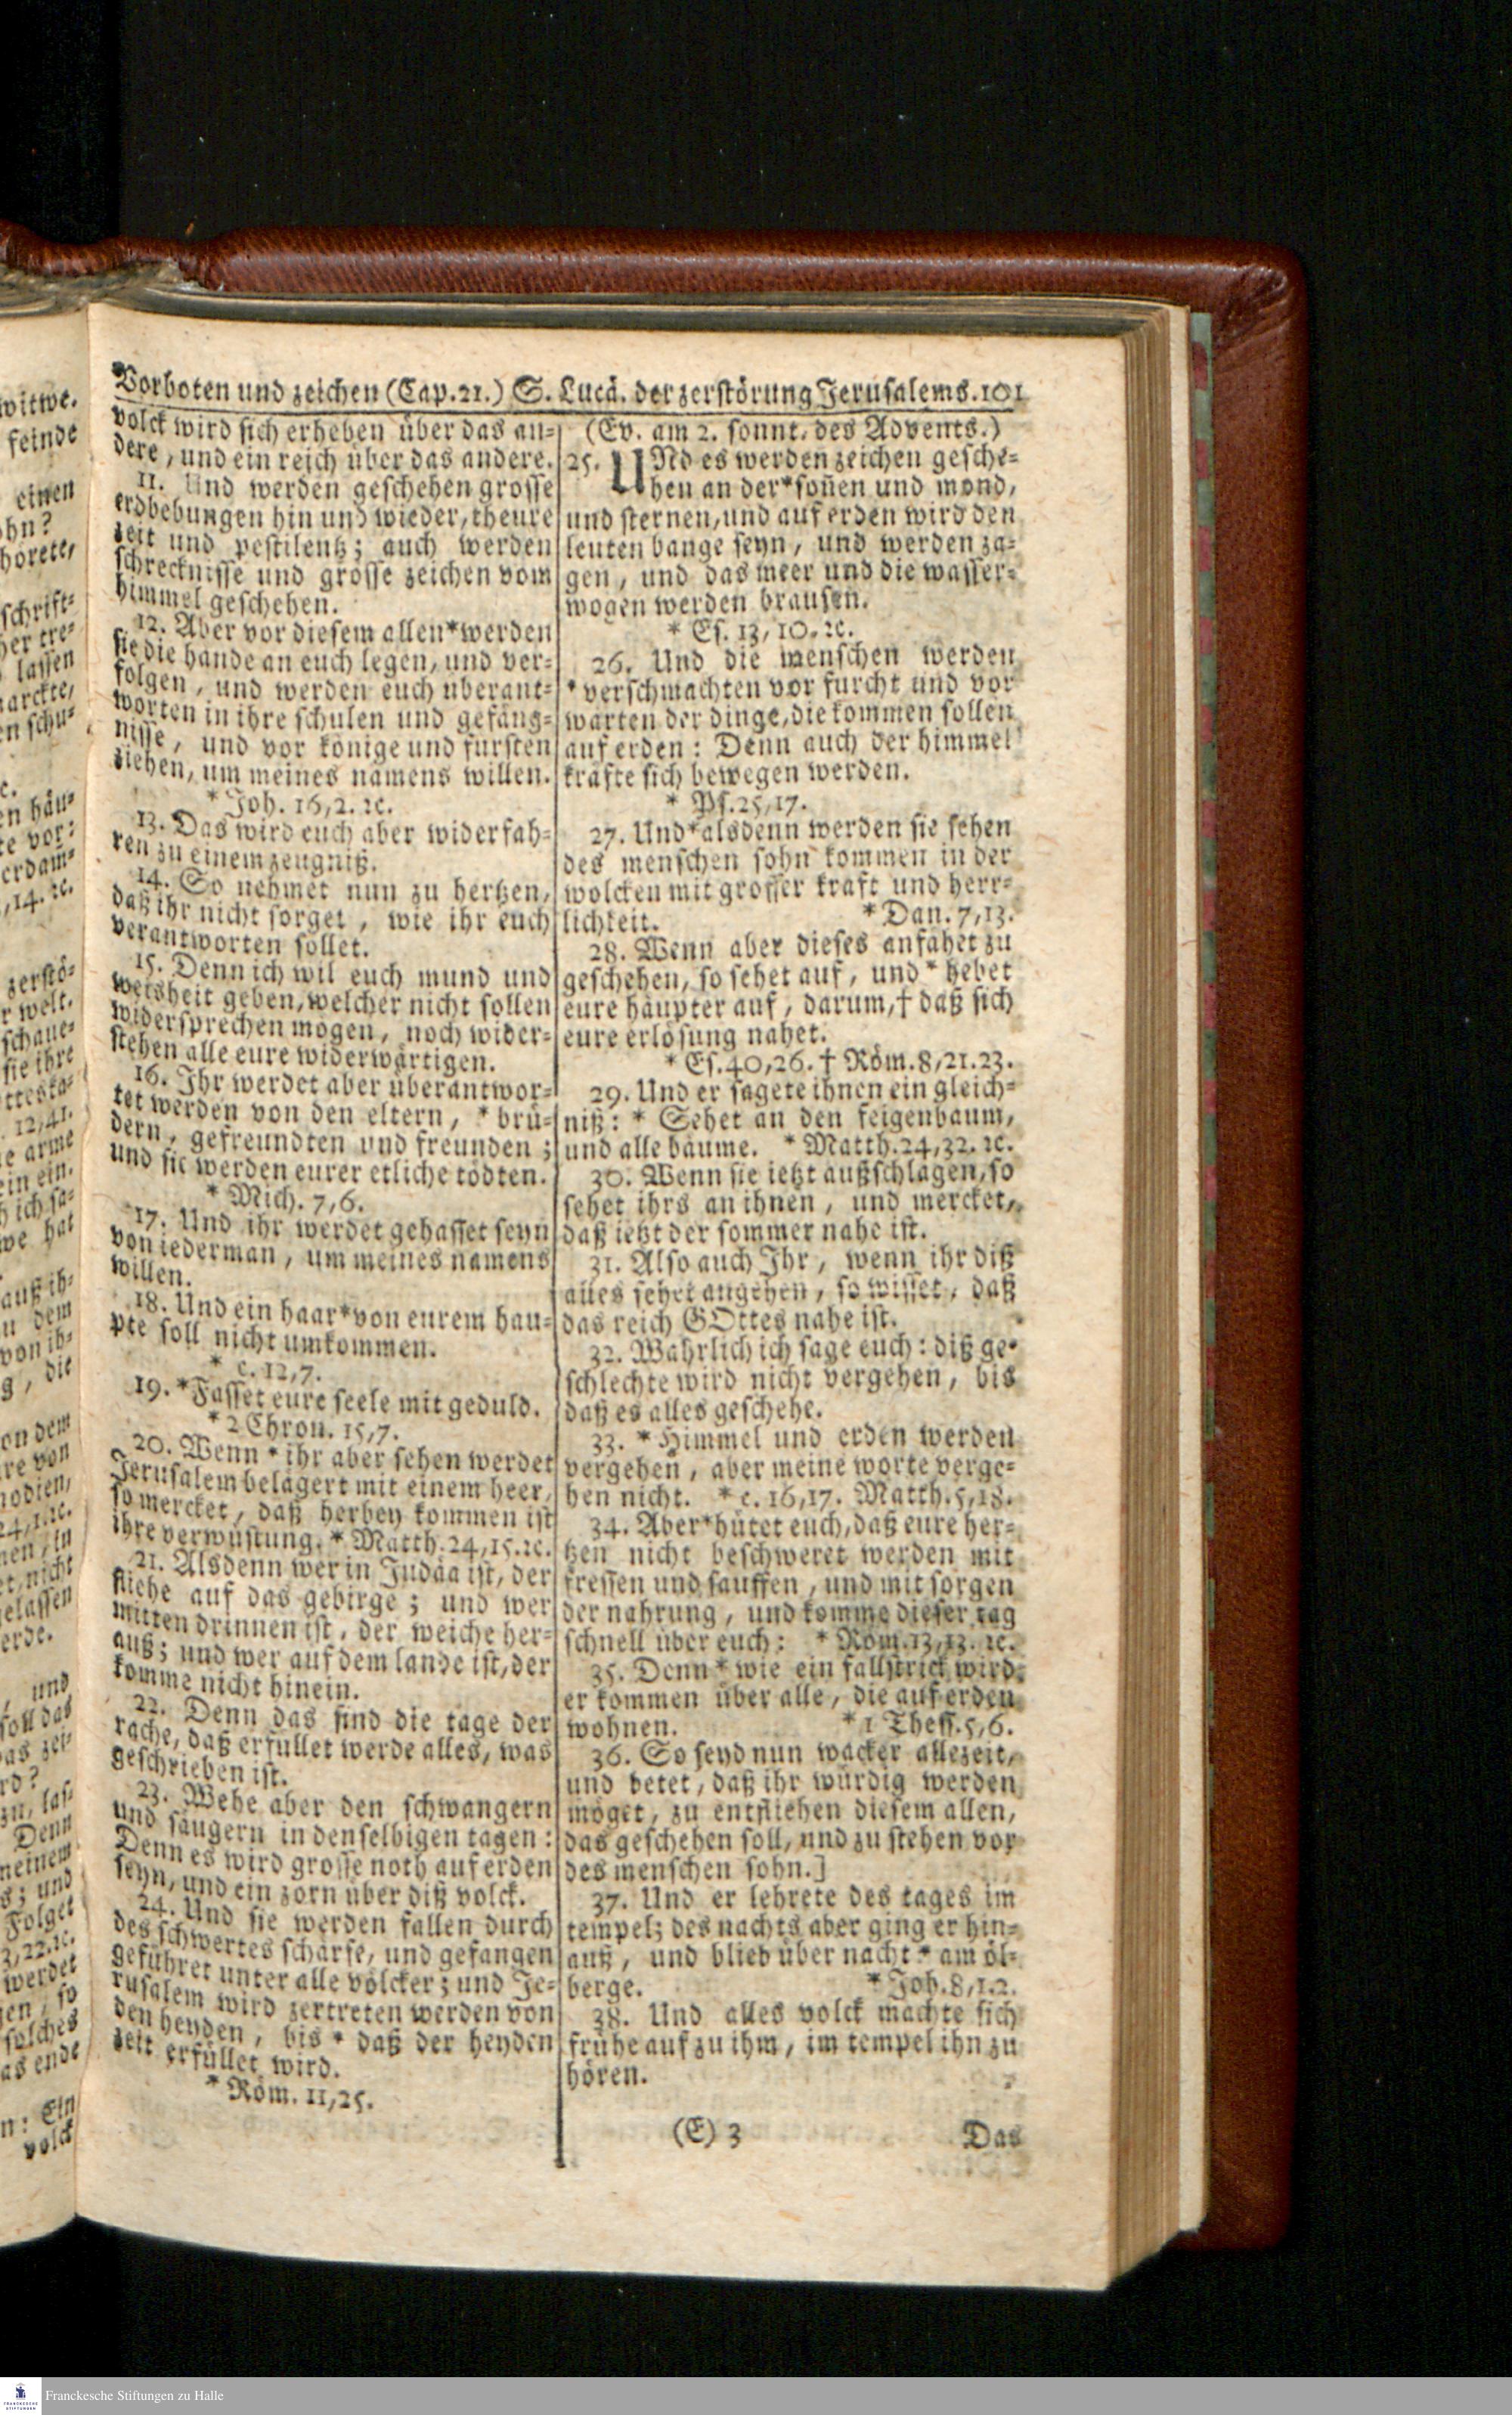 Vorboten und zeichen (Cap.21.) S. Lucä. der zerstörung Jerusalems. 101
volck wird sich erheben über das an-
dere, und ein reich über das andere.
11. Und werden geschehen grosse
erdbebungen hin und wieder, theure
zeit und pestilentz; auch werden
schrecknisse und grosse zeichen vom
himmel geschehen.
12. Aber vor diesem allen*werden
sie die hände an euch legen, und ver-
folgen, und werden euch überant-
worten in ihre schulen und gefäng-
nisse, und vor könige und fürsten
ziehen, um meines namens willen.
* Joh. 16,2. ꝛc.
13. Das wird euch aber widerfah-
ren zu einem zeugniß.
14. So nehmet nun zu hertzen,
daß ihr nicht sorget, wie ihr euch
verantworten sollet.
15. Denn ich wil euch mund und
weisheit geben, welcher nicht sollen
widersprechen mögen, noch wider-
stehen alle eure widerwärtigen.
16. Ihr werdet aber überantwor-
tet werden von den eltern, * brü-
dern, gefreundten und freunden;
und sie werden eurer etliche tödten.
* Mich. 7,6.
17. Und ihr werdet gehasset seyn
von iederman, um meines namens
willen.
18. Und ein haar*von eurem hau-
pte soll nicht umkommen.
* c. 12,7.
19. *Fasset eure seele mit gedult.
* 2 Chron. 15,7.
20. Wenn * ihr aber sehen werdet
Jerusalem belägert mit einem heer,
so mercket, daß herbey kommen ist
ihre verwüstung. * Matth. 24,15.ꝛc.
21. Alsdenn wer in Judäa ist, der
fliehe auf das gebirge; und wer
mitten drinnen ist, der weiche her-
auß; und wer auf dem lande ist, der
komme nicht hinein.
22. Denn das sind die tage der
rache, daß erfüllet werde alles, was
geschrieben ist.
23. Wehe aber den schwangern
und säugern in denselbigen tagen:
Denn es wird grosse noth auf erden
seyn, und ein zorn über diß volck.
24. Und sie werden fallen durch
des schwertes schärfe, und gefangen
geführet unter alle völcker; und Je-
rusalem wird zertreten werden von
den heyden, bis * daß der heyden
zeit erfüllet wird.
* Röm. 11,25.
(Ev. am 2. sonnt. des Advents.)
25. UNd es werden zeichen gesche-
hen an der*sonen und mond,
und sternen, und auf erden wird den
leuten bange seyn, und werden za-
gen, und das meer und die wasser-
wogen werden brausen.
* Es. 13, 10. ꝛc.
26. Und die menschen werden
* verschmachten vor furcht und vor
warten der dinge, die kommen sollen
auf erden: Denn auch der himmel
kräfte sich bewegen werden.
* Ps. 25,17.
27. Und*alsdenn werden sie sehen
des menschen sohn kommen in der
wolcken mit grosser kraft und herr-
lichkeit. * Dan. 7,13.
28. Wenn aber dieses anfähet zu
geschehen, so sehet auf, und * hebet
eure häupter auf, darum, † daß sich
eure erlösung nahet.
* Es.40,26. † Röm. 8,21.23.
29. Und er sagete ihnen ein gleich-
niß: * Sehet an den feigenbaum,
und alle bäume. * Matth.24,32. ꝛc.
30. Wenn sie ietzt außschlagen, so
sehet ihrs an ihnen, und mercket,
daß ietzt der sommer nahe ist.
31. Also auch Ihr, wenn ihr diß
alles sehet angehen, so wisset, daß
das reich GOttes nahe ist.
32. Wahrlich ich sage euch: diß ge-
schlechte wird nicht vergehen, bis
daß es alles geschehe.
33. * Himmel und erden werden
vergehen, aber meine worte verge-
hen nicht. * c. 16,17. Matth. 5,18.
34. Aber*hütet euch, daß eure her-
tzen nicht beschweret werden mit
fressen und sauffen, und mit sorgen
der nahrung, und komme dieser tag
schnell über euch: * Röm. 13,13. ꝛc.
35. Denn * wie ein fallstrick wird
er kommen über alle, die auf erden
wohnen. * 1 Thess. 5,6.
36. So seyd nun wacker allezeit,
und betet, daß ihr würdig werden
möget, zu entfliehen diesem allen,
das geschehen soll, und zu stehen vor
des menschen sohn.]
37. Und er lehrete des tages im
tempel; des nachts aber ging er hin-
auß, und blieb über nacht * am öl-
berge. * Joh. 8,1.2.
38. Und alles volck machte sich
frühe auf zu ihm, im tempel ihn zu
hören.
(E) 3 Das
Franckesche Stiftungen zu Halle